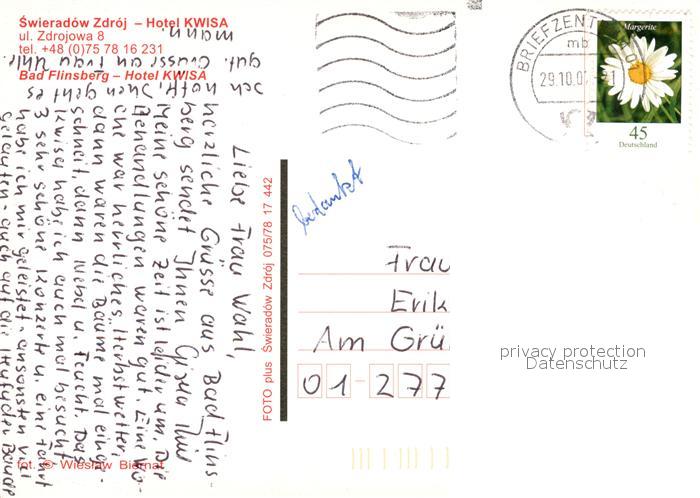 Świeradów Zdrój – Hotel KWISA
ul. Zdrojowa 8
tel. +48 (0)75 78 16 231
Bad Flinsberg – Hotel KWISA
Liebe Frau Wahl,
herzliche Grüsse aus Bad Flins-
berg sendet Ihnen Gisela
Meine schöne Zeit ist leider um. Die
Behandlungen waren gut. Eine Wo-
che war herrliches Herbstwetter,
dann waren die Bäume mal einge-
schneit, dann Nebel u. feucht. Das
Kwisa habe ich auch mal besucht
3 sehr schöne Konzerte u. eine Fahrt
habe ich mir geleistet - ansonsten viel
gelaufen - auch auf die Heufuder Baude
Ich hoffe, Ihnen geht es
gut. Grüsse an Frau
mann.
fot. © Wiesław Biernat
FOTO plus Świeradów Zdrój 075/78 17 442
bedankt
BRIEFZENTRUM
mb
29.10.0
Margerite
45
Deutschland
Frau
Erik
Am Grü
01-277
privacy protection
Datenschutz